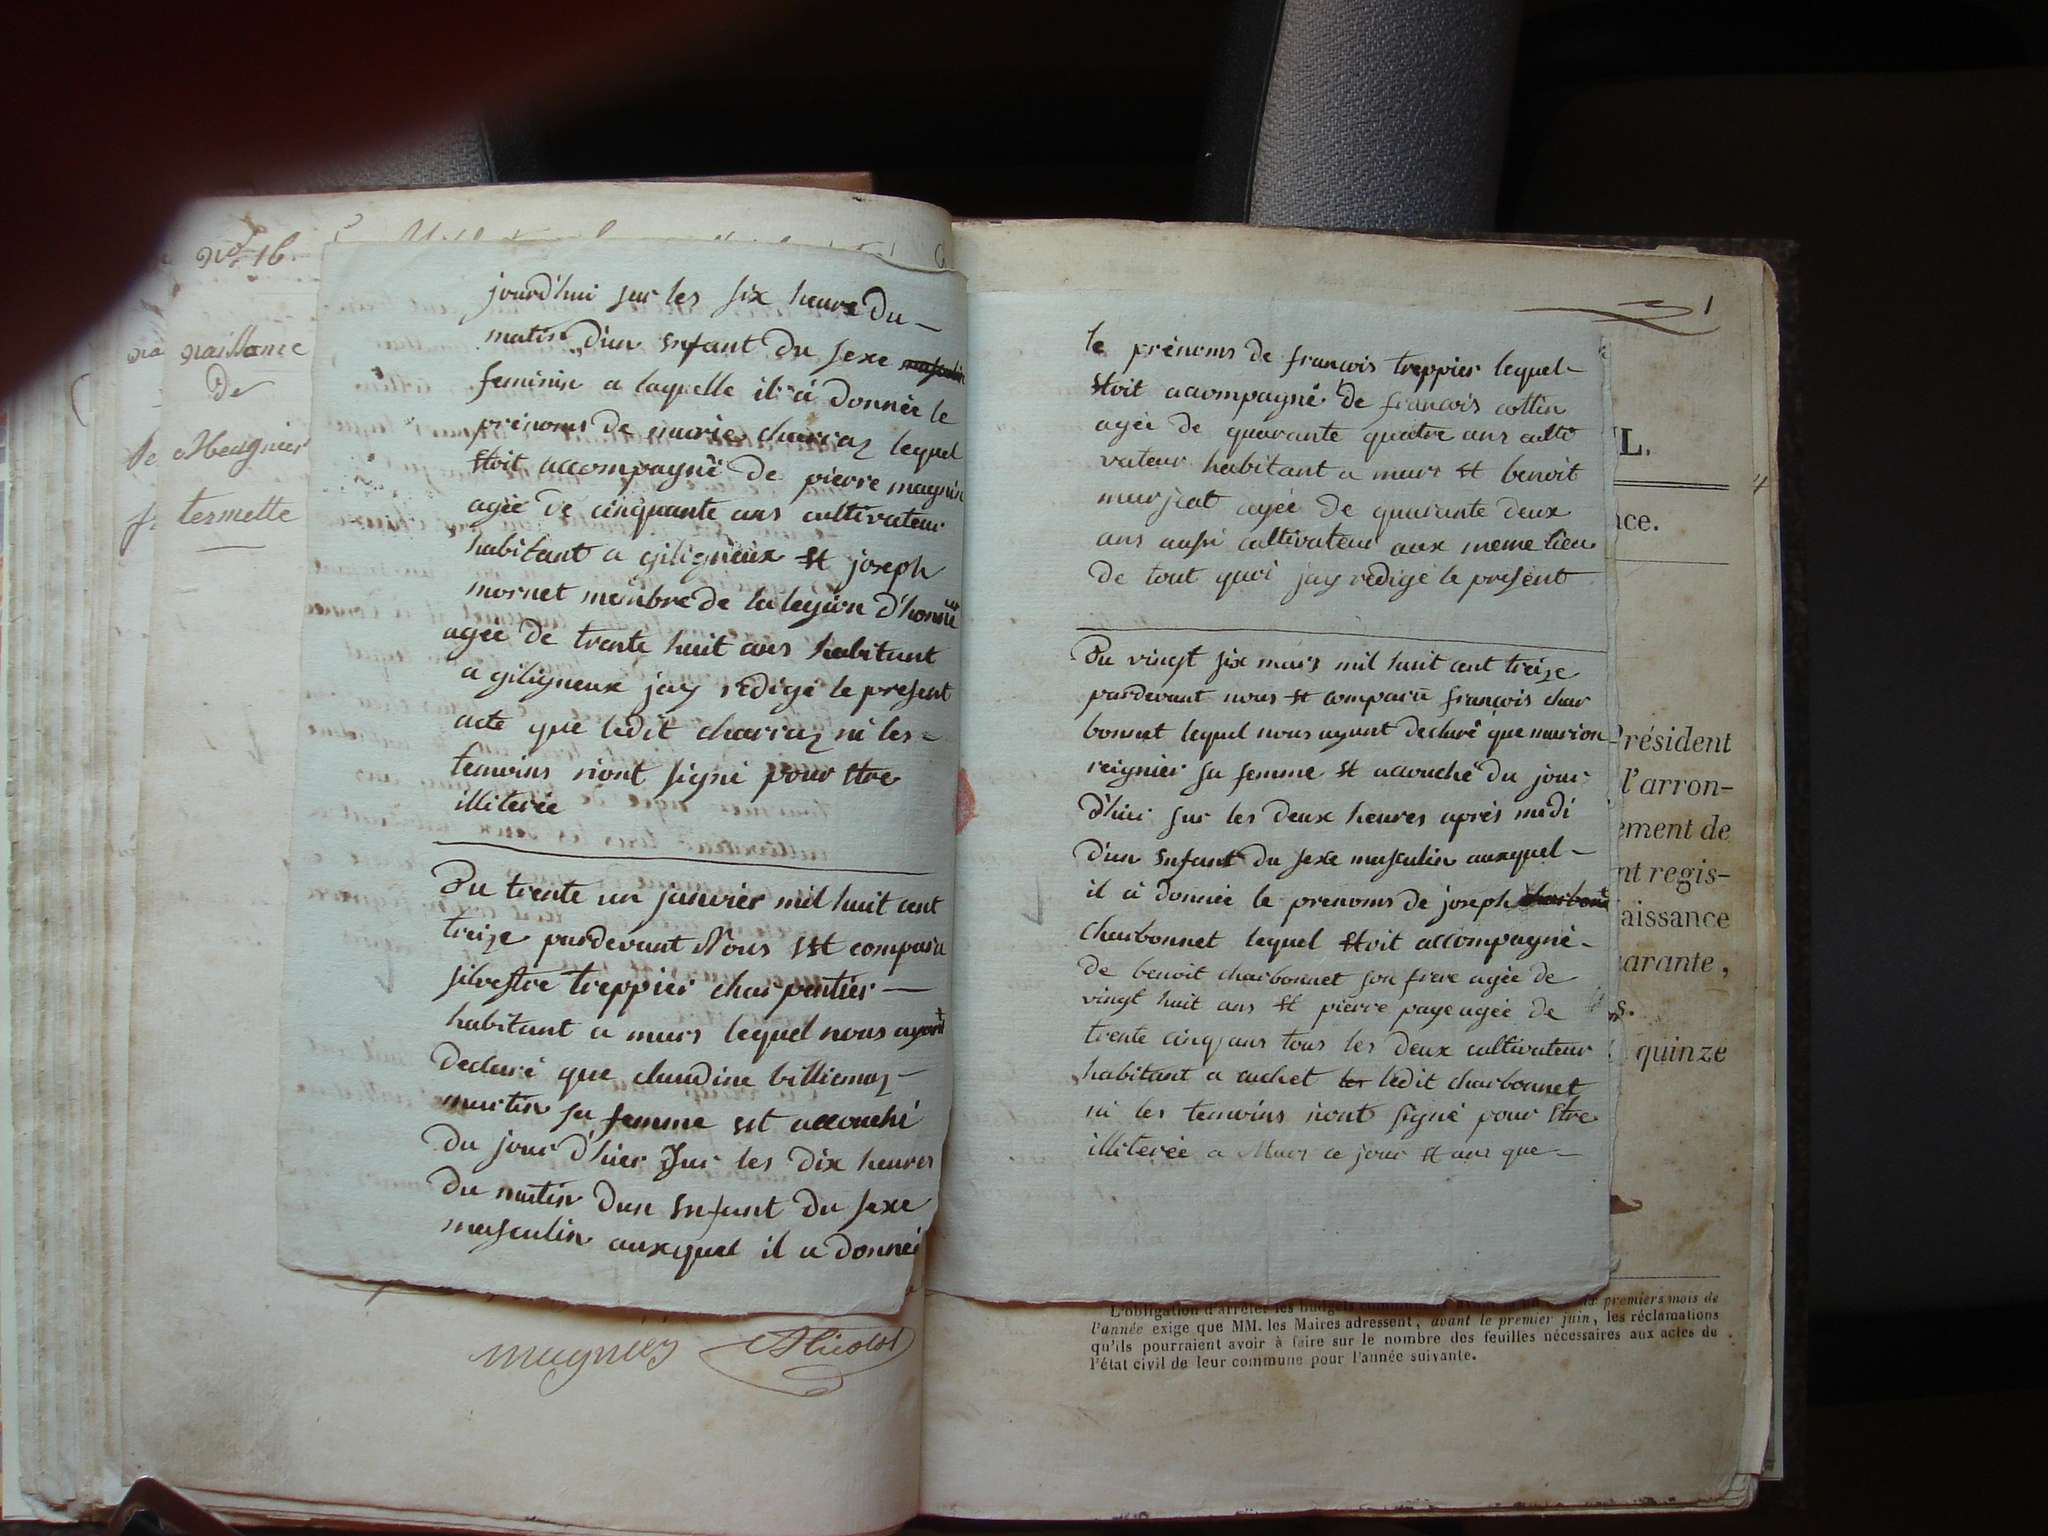 No. 16.
naissance
de
Meugnier
termette
jourd'hui sur les six heure du —
matin d'un enfant du sexe masculin
feminin a laquelle il a donnée le
prénoms de marie charraz lequel
etoit accompagné de pierre magnin
agée de cinquante ans cultivateur
habitant a giligneux et joseph
mornet membre de la legion d'honneur
agée de trente huit ans habitant
a giligneux jay redigé le present
acte que ledit charraz ni les -
temoins n'ont signé pour etre
illiterée
Du trente un janvier mil huit cent
treize pardevant Nous est comparu
silvestre treppier charpentier —
habitant a murs lequel nous ayant
declaré que claudine billiemaz -
martin sa femme est accouché
du jour d'hier sur les dix heures
du matin d'un enfant du sexe
masculin auxquel il a donnée
magnien Nicolot
1
le prénoms de francois treppier lequel -
etoit acompagné de francois cottin
agée de quarante quatre ans culti
vateur habitant a murs et benoit
murjat agée de quarante deux
ans aussi cultivateur aux meme lieu
de tout quoi jay redigé le present
Du vingt six mars mil huit cent treize
pardevant nous et comparu françois char
bonnet lequel nous ayant declaré que marion
reignier sa femme et acouché du jour
d'hui sur les deux heures après midi
d'un enfant du sexe masculin auxquel -
il a donnée le prenoms de joseph charbonet
charbonnet lequel etoit accompagné -
de benoit charbonnet son frere agée de
vingt huit ans et pierre paye agée de
trente cinq ans tous les deux cultivateur
habitant a cuchet ledit charbonnet
ni les temoins n'ont signé pour etre
illiterée a Murs ce jour et ans que -
L.
nce.
Président
l'arron-
ement de
nt regis-
aissance
arante,
s.
quinze
L'obligation d'arrêter les budgets premiers mois de
l'année exige que MM. les Maires adressent, avant le premier juin, les réclamations
qu'ils pourraient avoir à faire sur le nombre des feuilles nécessaires aux actes de
l'état civil de leur commune pour l'année suivante.